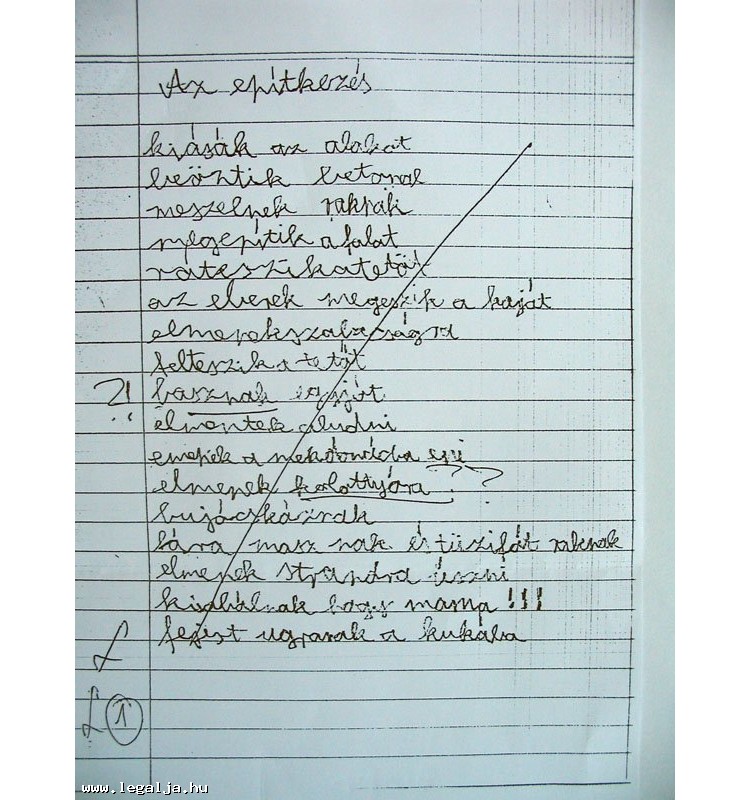 Az epítkezés
kiásák az alakat
beöntik betonal
meszelnek raknak
megepítik a falat
rateszik a tetöt
az eberek megeszik a kaját
elmenek szabaságra
felteszik a tetöt
?! basznak egyjót
elmentek aludni
emenek a mekdonádba eni
elmenek kalottyóra ? ?
bujácskáznak
fára masz nak és tüzifát raknak
elmenek strandra úszni
kiabálnak hogy mama !!!
fejest ugranak a kukába
1
www.legalja.hu